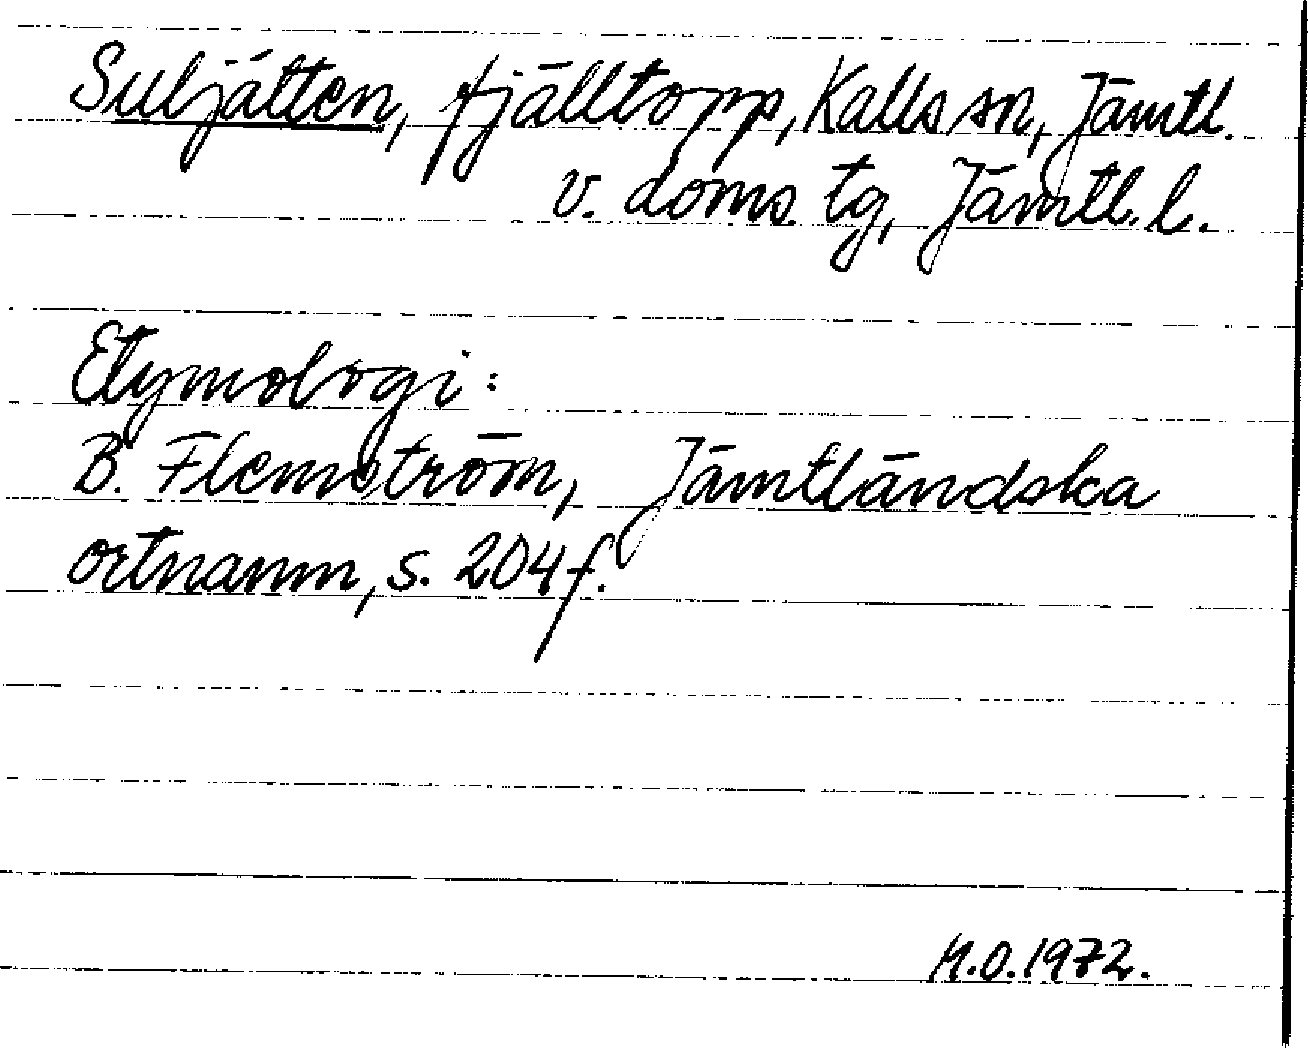 Suljätten, fjälltopp, Kalls sn, Jämtl.
v. doms. tg, Jämtl. l.
Etymologi:
B. Flemström, Jämtländska
ortnamn, s. 204 f.
M.O. 1972.